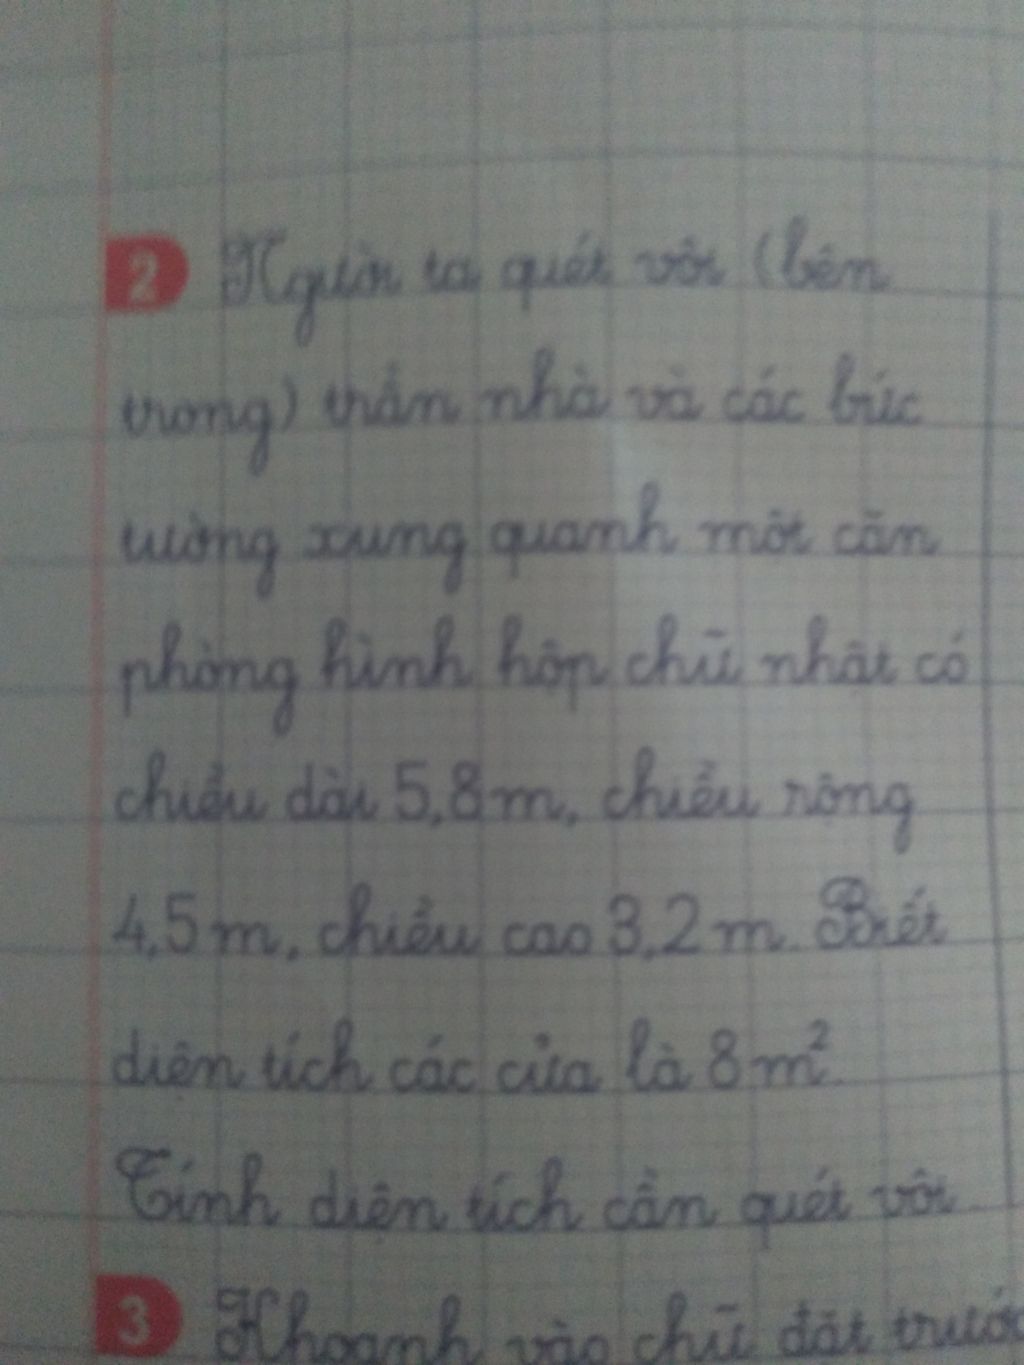 2 Người ta quét vôi (bên
trong) trần nhà và các bức
tường xung quanh một căn
phòng hình hộp chữ nhật có
chiều dài 5,8m, chiều rộng
4,5m, chiều cao 3,2m. Biết
diện tích các cửa là 8m².
Tính diện tích cần quét vôi.
3 Khoanh vào chữ đặt trước